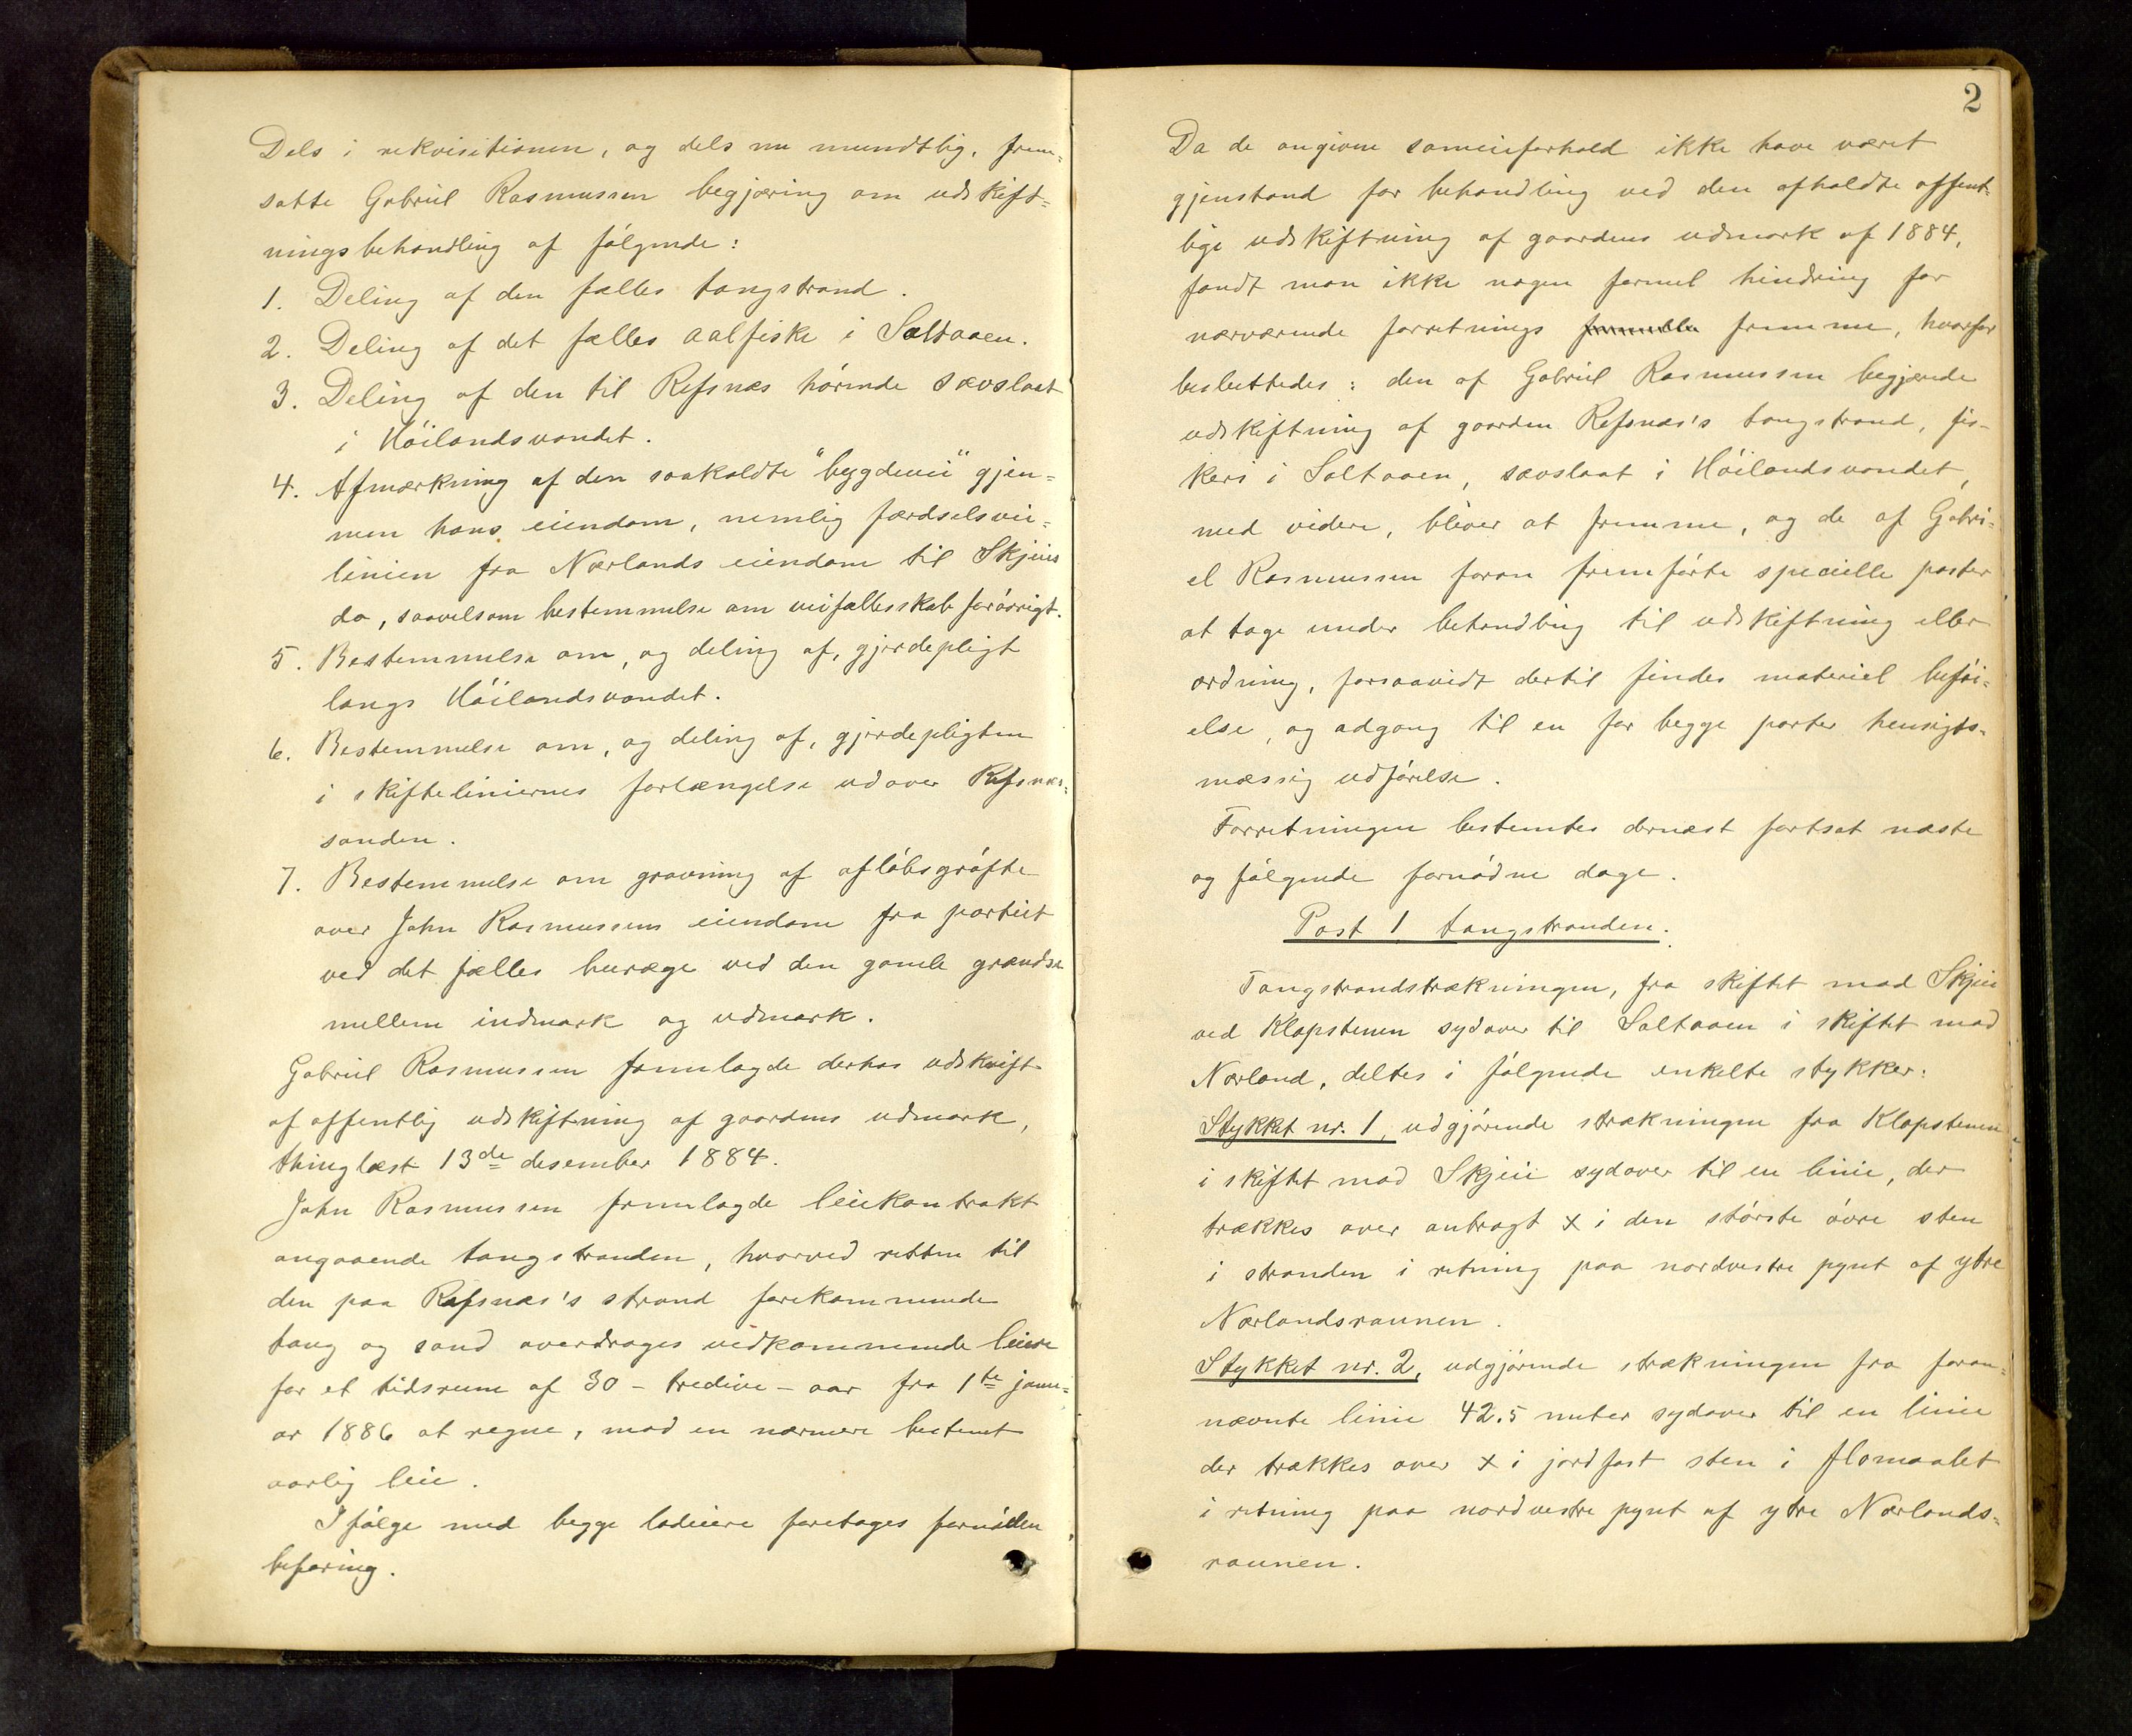 Dels i rekvisitionen, og dels nu mundtlig, frem=
satte Gabriel Rasmussen begjæring om udskift=
ningsbehandling af følgende:
1. Deling af den fælles tangstrand.
2. Deling af det fælles aalfiske i Saltaaen.
3. Deling af den til Refsnæs hørende sævslaat
i Høilandsvandet.
4. Afmærkning af den saakaldte "bygdevei" gjen=
nem hans eiendom, nemlig færdselsvei=
linien fra Nærlands eiendom til Skjeies
do, saavelsom bestemmelse om veifællesskab forøvrigt.
5. Bestemmelse om, og deling af, gjerdepligt
langs Høilandsvandet.
6. Bestemmelse om, og deling af, gjerdepligten
i skifteliniernes forlængelse udover Refsnæs=
sanden.
7. Bestemmelse om gravning af afløbsgrøfte
over John Rasmussens eiendom fra partiet
ved det fælles huræge ved den gamle grændse
mellem indmark og udmark.
Gabriel Rasmussen fremlagde derhos udskrift
af offentlig udskiftning af gaardens udmark,
thinglæst 13de desember 1884.
John Rasmussen fremlagde leiekontrakt
angaaende tangstranden, hvorved retten til
den paa Refsnæs's strand forekommende
tang og sand overdrages vedkommende leiere
for et tidsrum af 30 - tredive - aar fra 1te janu=
ar 1886 at regne, mod en nærmere bestemt
aarlig leie.
I følge med begge lodeiere foretages fornøden
befaring.
2
Da de angivne sameieforhold ikke have været
gjenstand for behandling ved den afholdte offent=
lige udskiftning af gaardens udmark af 1884,
fandt man ikke nogen formel hindring for
nærværende forretnings fremme, hvorfor
besluttedes: den af Gabriel Rasmussen begjærede
udskiftning af gaarden Refsnæs's tangstrand, fis-
keri i Saltaaen, sævslaat i Høilandsvandet,
med videre, bliver at fremme, og de af Gabri=
el Rasmussen foran fremførte specielle poster
at tage under behandling til udskiftning eller
ordning, forsaavidt dertil findes materiel beføi=
else, og adgang til en for begge parter hensigts=
mæssig udførelse.
Forretningen bestemtes dernæst fortsat næste
og følgende fornødne dage.
Post 1 tangstranden.
Tangstrandstrækningen, fra skiftet mod Skjeie
ved Klapstenen sydover til Saltaaen i skiftet mod
Nærland, deltes i følgende enkelte stykker:
Stykket nr. 1, udgjørende strækningen fra Klapstenen
i skiftet mod Skjeie sydover til en linie, der
trækkes over antragt x i den største øvre sten
i stranden i retning paa nordvestre pynt af ytre
Nærlandsraunen.
Stykket nr. 2, udgjørende strækningen fra foran=
nævnte linie 42.5 meter sydover til en linie
der trækkes over x i jordfast sten i flomaalet
i retning paa nordvestre pynt af ytre Nærlands=
raunen.